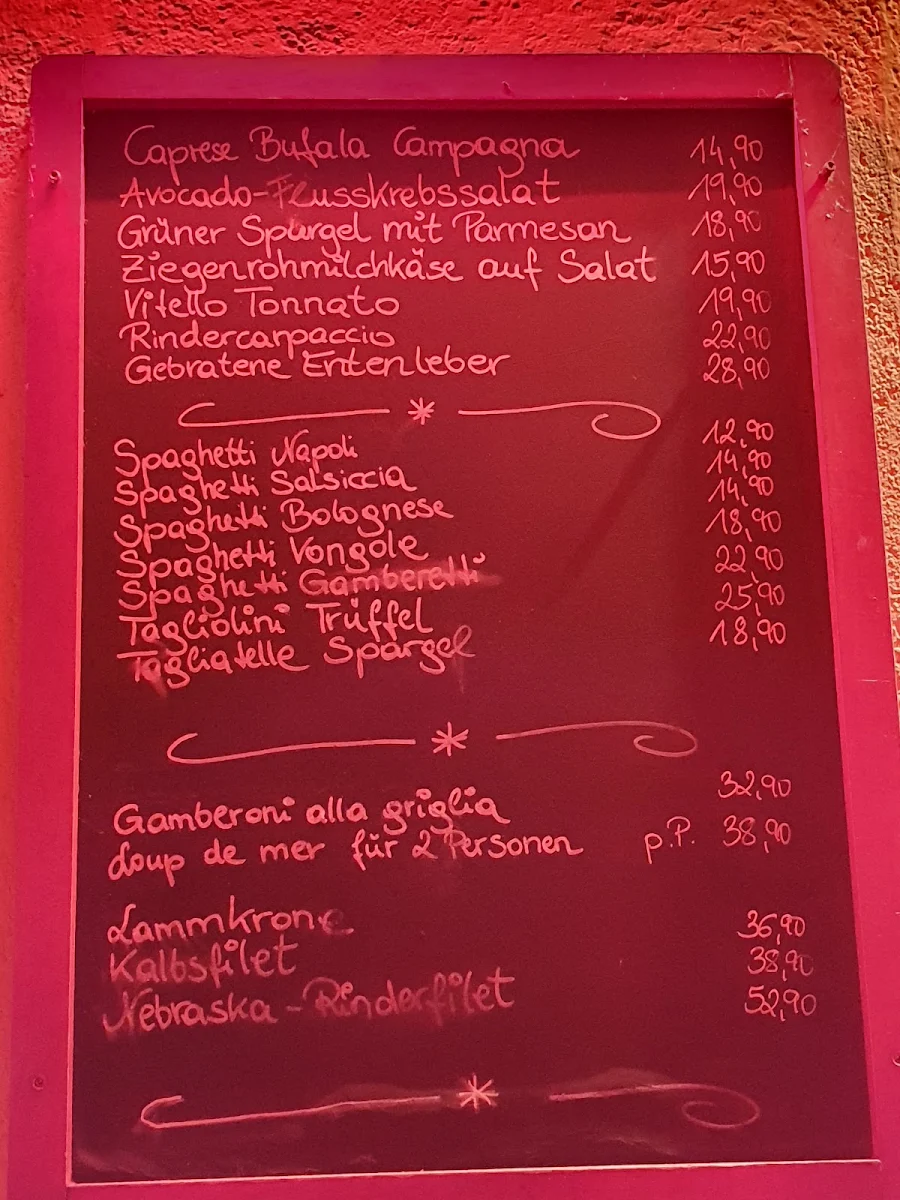 Caprese Bufala Campagna 14,90
Avocado-Flusskrebssalat 19,90
Grüner Spargel mit Parmesan 18,90
Ziegenrohmilchkäse auf Salat 15,90
Vitello Tonnato 19,90
Rindercarpaccio 22,90
Gebratene Entenleber 28,90
Spaghetti Napoli 12,90
Spaghetti Salsiccia 14,90
Spaghetti Bolognese 14,90
Spaghetti Vongole 18,90
Spaghetti Gamberetti 22,90
Tagliolini Trüffel 25,90
Tagliatelle Spargel 18,90
Gamberoni alla griglia 32,90
Loup de mer für 2 Personen p.P. 38,90
Lammkrone 36,90
Kalbsfilet 38,90
Nebraska-Rinderfilet 52,90